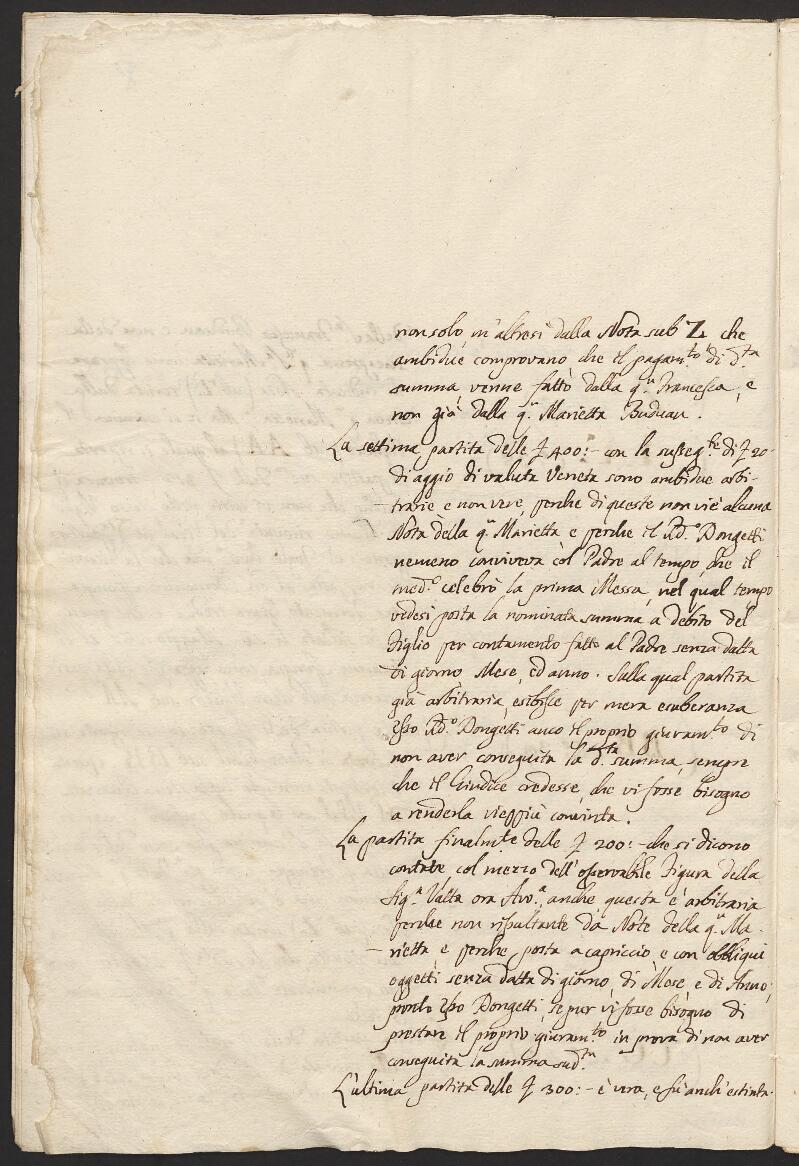 non solo m'altresi dalla Nota sub Z, che
ambidue comprovano che il pagam.to di d.ta
summa venne fatto dalla q.m Francesca, e
non già dalla q.m Marietta Buduan.
La settima partita delle ƒ 400:- con la susseg.te di ƒ 20-
di aggio di valuta Veneta sono ambidue arbi-
trarie e non vere, perche di queste non vi è alcuna
Nota della q.m Marietta e perche il Rd.o Dongetti
nemeno conviveva col Padre al tempo, che il
med.o celebrò la prima Messa, nel qual tempo
vedesi posta la nominata summa a debito del
Figlio per contamento fatto al Padre senza datta
di giorno, Mese, ed anno. Sulla qual partita
già arbitraria, esibisce per mera esuberanza
esso Rd.o Dongetti anco il proprio giuram.to di
non aver conseguita la d.ta summa, sempre
che il Giudice credesse, che vi fosse bisogno
a renderla vieppiù convinta.
La partita finalm.te delle ƒ 200:- che si dicono
contate col mezzo dell'osservabile Figura della
Sig.a Valta ora Avv.a, anche questa è arbitraria
perche non risultante da Note della q.m Ma-
rietta e perche posta a capriccio, e con obbliqui
oggetti senza datta di giorno, di Mese, e di Anno,
pronto esso Dongetti, se pur vi fosse bisogno di
prestare il proprio giuram.to in prova di non aver
conseguita la summa sud.ta
L'ultima partita delle ƒ 300:- è vera, e fu anch'estinta.